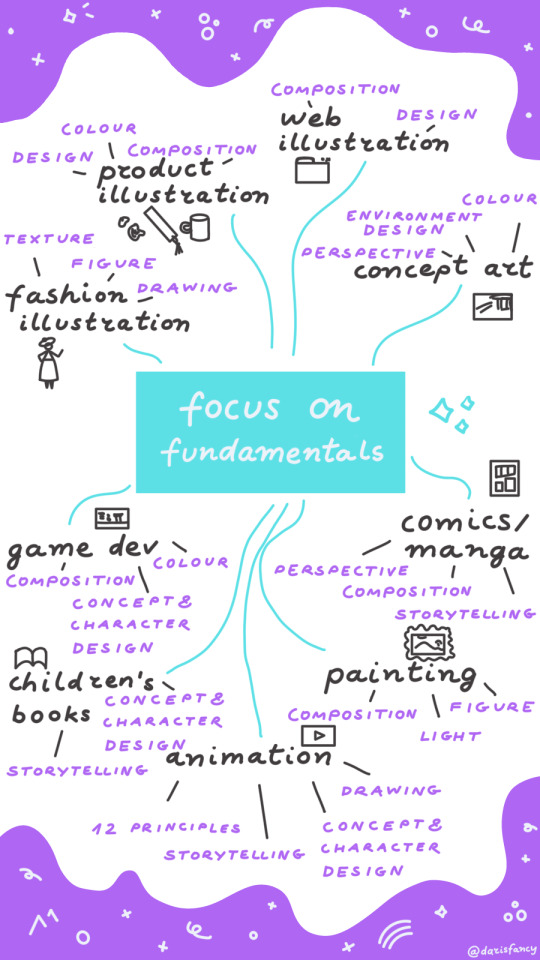 COMPOSITION
web
illustration
DESIGN
COLOUR
DESIGN
COMPOSITION
product
illustration
COLOUR
ENVIRONMENT
DESIGN
PERSPECTIVE
concept art
TEXTURE
FIGURE
DRAWING
fashion
illustration
focus on
fundamentals
game dev
COMPOSITION
COLOUR
CONCEPT &
CHARACTER
DESIGN
comics/
manga
PERSPECTIVE
COMPOSITION
STORYTELLING
children's
books
CONCEPT &
CHARACTER
DESIGN
STORYTELLING
painting
COMPOSITION
FIGURE
LIGHT
animation
DRAWING
12 PRINCIPLES
STORYTELLING
CONCEPT &
CHARACTER
DESIGN
@darisfancy